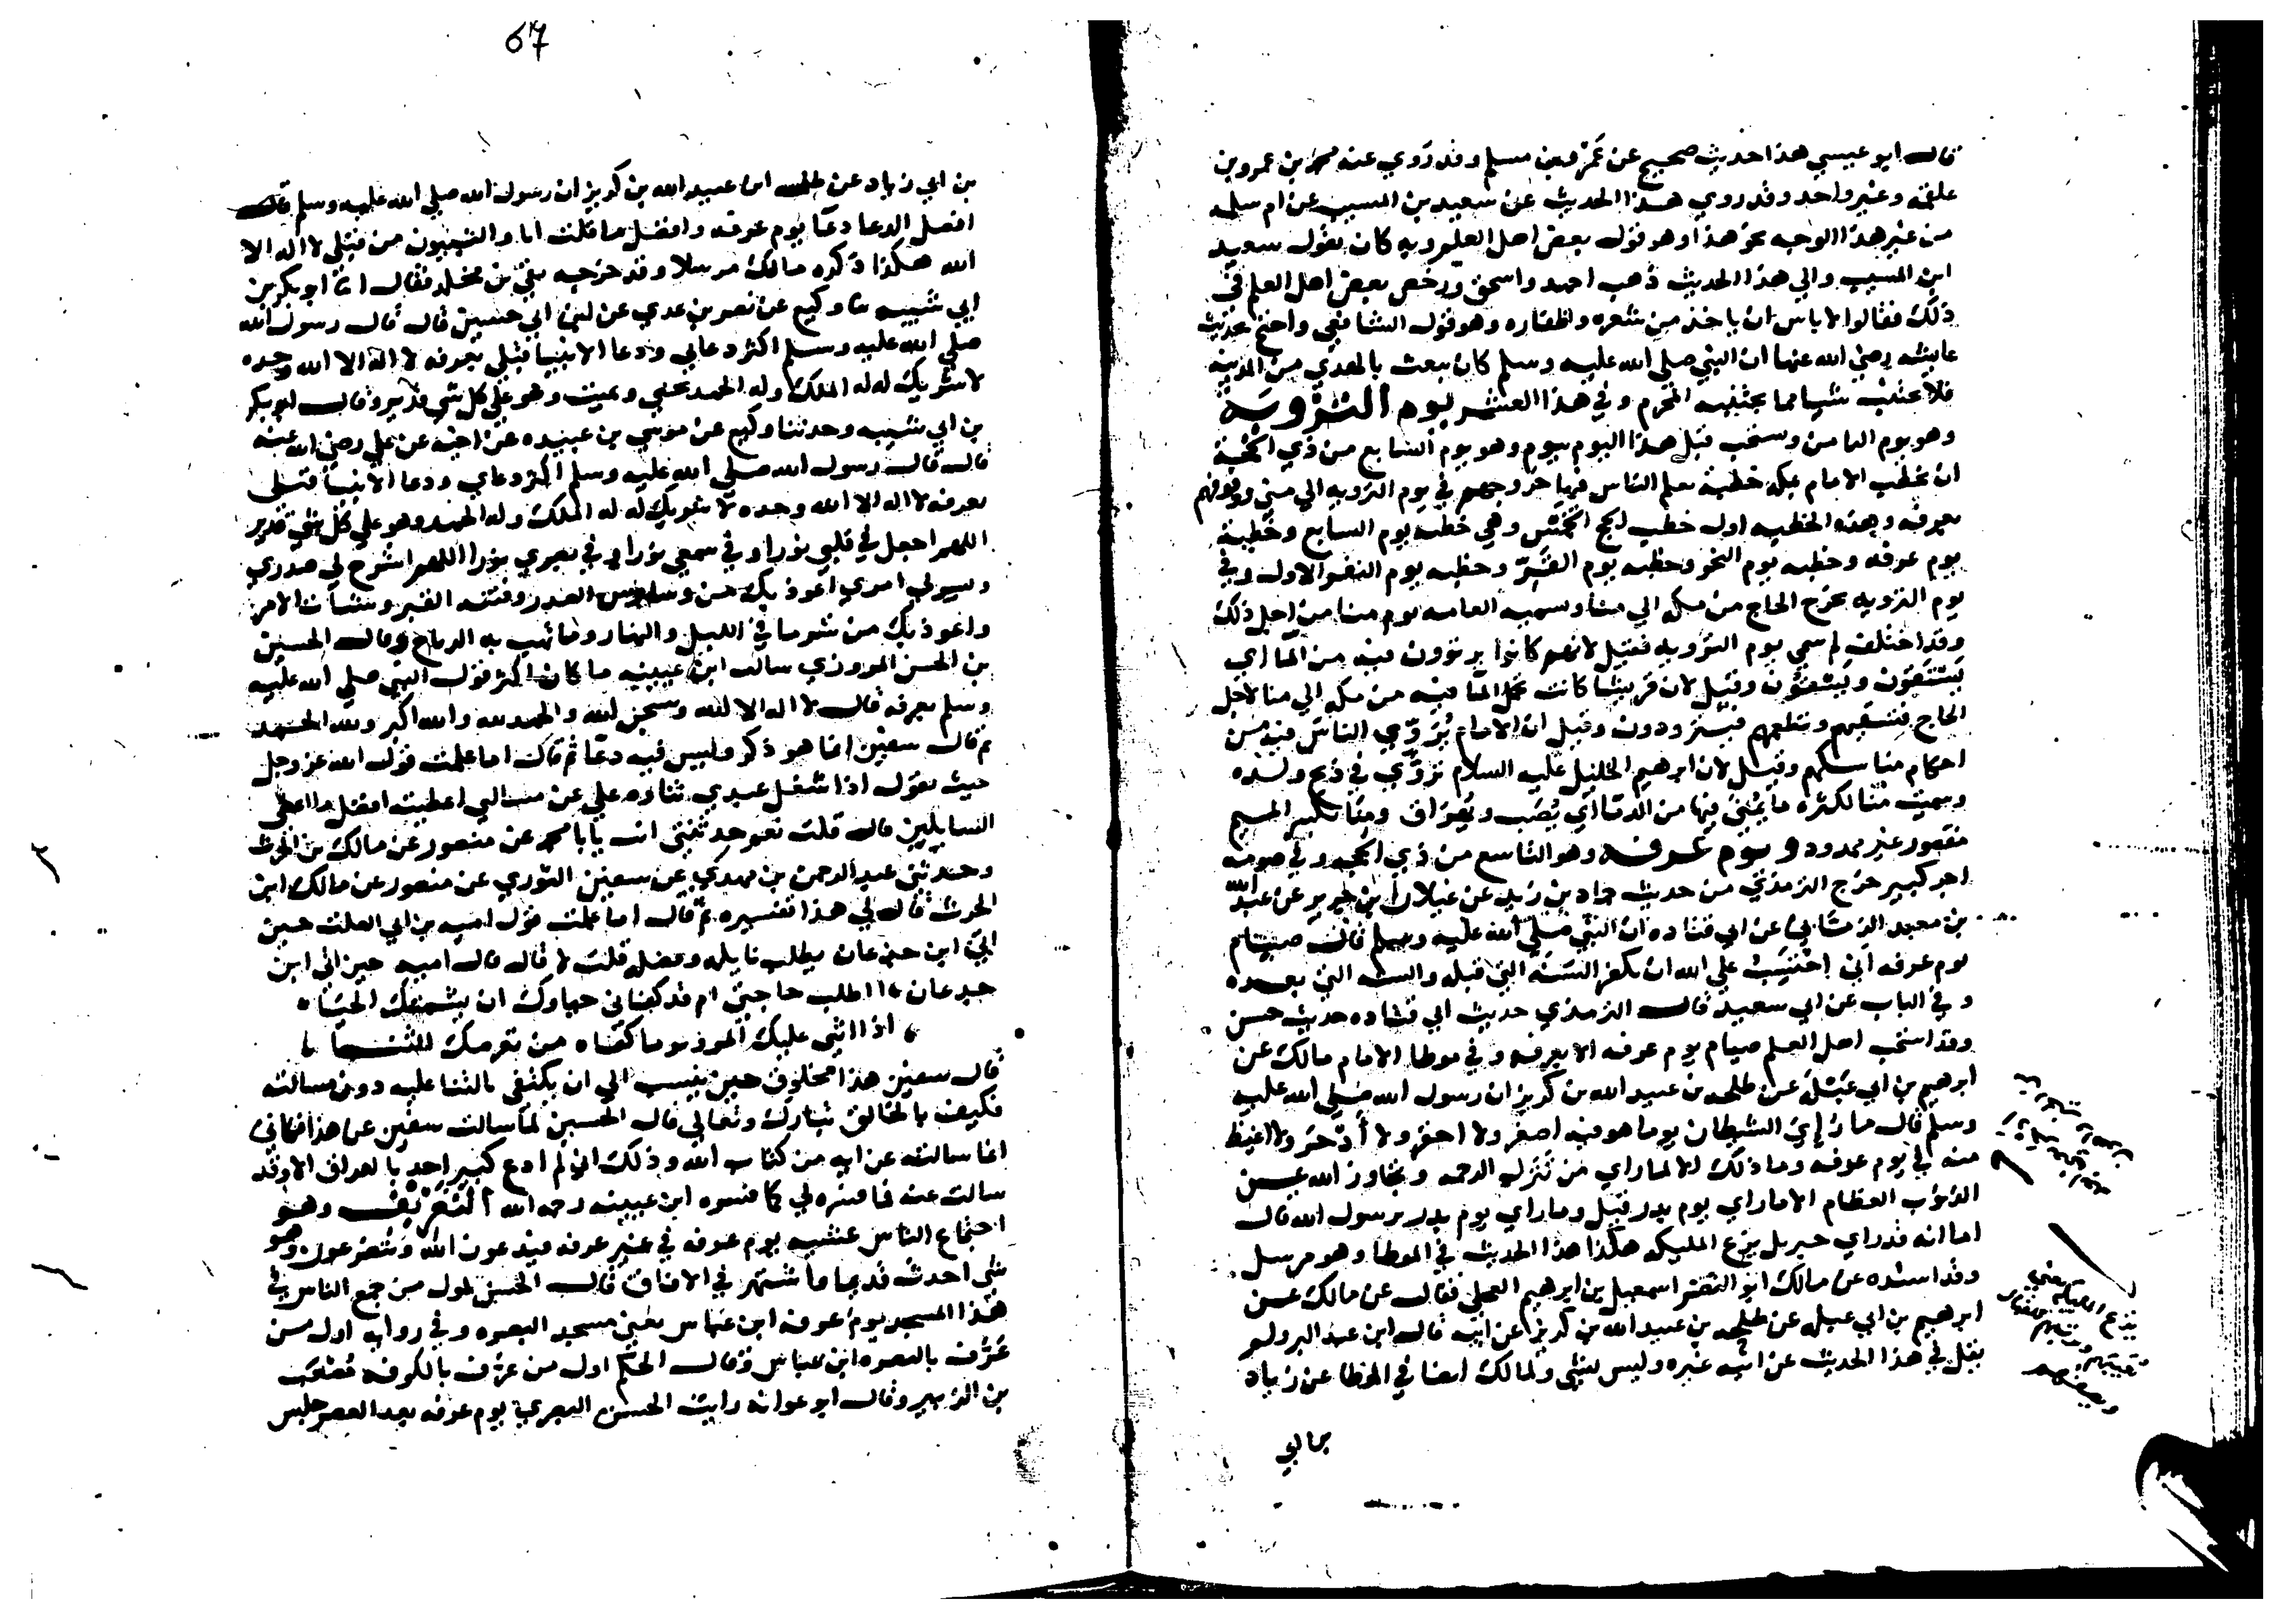 قال ابو عيسي هذا حديث صحيح عن عمرو بن مسلم وقد روي عنه محمد بن عمرو بن
علقمه وغير واحد وقد روي هذا الحديث عن سعيد بن المسيب عن ام سلمه
من غير هذا الوجه نحو هذا وهو قول بعض اهل العلم وبه كان يقول سعيد
ابن المسيب والي هذا الحديث ذهب احمد واسحق ورخص بعض اهل العلم في
ذلك فقالوا لا باس ان ياخذ من شعره واظفاره وهو قول الشافعي واحتج بحديث
عايشه رضي الله عنها ان النبي صلي الله عليه وسلم كان يبعث بالهدي من المدينه
فلا يجتنب شيا مما يجتنبه المحرم وفي هذا العشر يوم التروية
وهو يوم الثامن ويستحب قبل هذا اليوم بيوم وهو يوم السابع من ذي الحجة
ان يخطب الامام بمكه خطبة يعلم الناس فيها خروجهم في يوم الترويه الي مني ووقوفهم
بعرفه وهذه الخطبه اول خطب الحج الخمس وهي خطبه يوم السابع وخطبة
يوم عرفه وخطبه يوم النحر وخطبه يوم القر وخطبه يوم النفر الاول وفي
يوم الترويه يخرج الحاج من مكه الي منا وسميه العامه يوم منا من اجل ذلك
وقد اختلف لم سمي يوم الترويه فقيل لانهم كانوا يرتوون فيه من الما اي
يستقون ويستعدون وقيل لان قريشا كانت تحمل الما فيه من مكه الي منا لاجل
الحاج فتسقيهم وتطعمهم فيتزودون وقيل ان الامام يروي الناس فيه من
احكام مناسكهم وقيل لان ابرهيم الخليل عليه السلام تروي في ذبح ولده
وسميت منا لكثره ما يمني فيها من الدما اي يصب ويهراق ومنا بكسر الميم
مقصور غير ممدود ويوم عرفه وهو التاسع من ذي الحجه وفي صومه
اجر كبير خرج الترمذي من حديث حماد بن زيد عن غيلان بن جرير عن عبد الله
بن معبد الزماني عن ابي قتاده ان النبي صلي الله عليه وسلم قال صيام
يوم عرفه اني احتسب علي الله ان يكفر السنه التي قبله والسنه التي بعده
وفي الباب عن ابي سعيد قال الترمذي حديث ابي قتاده حديث حسن
وقد استحب اهل العلم صيام يوم عرفه الا بعرفه وفي موطا الامام مالك عن
ابرهيم بن ابي عبلة عن طلحه بن عبيد الله بن كريز ان رسول الله صلي الله عليه
وسلم قال ما رإي الشيطان يوما هو فيه اصغر ولا احقر ولا أدحر ولا اغيظ
منه في يوم عرفه وما ذلك الا لما راي من تنزل الرحمه وتجاوز الله عن
الذنوب العظام الا ما راي يوم بدر قيل وما راي يوم بدر يرسول الله قال
اما انه قد راي جبريل يزع المليكه هكذا هذا الحديث في الموطا وهو مرسل
وقد اسنده عن مالك ابو النضر اسمعيل بن ابرهيم العجلي فقال عن مالك عن
ابرهيم بن ابي عبله عن طلحه بن عبيد الله بن كريز عن ابيه قال ابن عبد البر ولم
يقل في هذا الحديث عن ابيه غيره وليس بشي ولمالك ايضا في الموطا عن زياد
67
بن ابي زياد عن طلحه ابن عبيد الله بن كريز ان رسول الله صلي الله عليه وسلم قال
افضل الدعا دعا يوم عرفه وافضل ما قلت انا والنبيون من قبلي لا اله الا
الله هكذا ذكره مالك مرسلا وقد خرجه بقي بن مخلد فقال انا ابو بكر بن
ابي شيبه نا وكيع عن نصر بن عدي عن ابن ابي حسين قال قال رسول الله
صلي الله عليه وسلم اكثر دعايي ودعا الانبيا قبلي بعرفه لا اله الا الله وحده
لا شريك له له الملك وله الحمد يحيي ويميت وهو علي كل شي قدير وقال ابو بكر
بن ابي شيبه وحدثنا وكيع عن موسي بن عبيده عن اخيه عن علي رضي الله عنه
قال قال رسول الله صلي الله عليه وسلم اكثر دعاي ودعا الانبيا قبلي
بعرفه لا اله الا الله وحده لا شريك له له الملك وله الحمد وهو علي كل شي قدير
اللهم اجعل في قلبي نورا وفي سمعي نورا وفي بصري نورا اللهم اشرح لي صدري
ويسر لي امري اعوذ بك من وساوس الصدر وفتنه القبر وشتات الامر
واعوذ بك من شر ما في الليل والنهار وما تهب به الرياح وقال الحسين
بن الحسن المروزي سالت ابن عيينه ما كان اكثر قول النبي صلي الله عليه
وسلم بعرفه قال لا اله الا الله وسبحن الله والحمد لله والله اكبر ولله الحمد
ثم قال سفين انما هو ذكر وليس فيه دعا ثم قال اما علمت قول الله عز وجل
حيث يقول اذا شغل عبدي ثناوه علي عن مسالتي اعطيته افضل ما اعطي
السايلين قال قلت نعم حدثتني انت يابا محمد عن منصور عن مالك بن الحرث
وحدثني عبد الرحمن بن مهدي عن سفين الثوري عن منصور عن مالك ابن
الحرث قال لي هذا تفسيره ثم قال اما علمت قول اميه بن ابي الصلت حين
اتي ابن جدعان يطلب نايله وفضله قلت لا قال قال اميه حين اتي ابن
جدعان ، ااطلب حاجتي ام قد كفاني حياوك ان شيمتك الحيا ،
، اذا اثني عليك المرء يوما كفاه من تعرضك الثنا ،
قال سفين هذا مخلوق حين ينسب الي ان يكتفي بالثنا عليه دون مسالته
فكيف بالخالق تبارك وتعالي قال الحسين لما سالت سفين عن هذا فكاني
انما سالته عن ايه من كتاب الله وذلك اني لم ادع كبير احد بالعراق الا وقد
سالت عنه فما فسره لي كما فسره ابن عيينه رحمه الله التعريف وهو
اجتماع الناس عشيه يوم عرفه في غير عرفه فيدعون الله ويتضرعون وهو
شي احدث قديما واشتهر في الافاق قال الحسن اول من جمع الناس في
هذا المسجد يوم عرفه ابن عباس يعني مسجد البصره وفي روايه اول من
عرف بالبصره ابن عباس وقال الحكم اول من عرف بالكوفه مصعب
بن الزبير وقال ابو عوانه رايت الحسن البصري يوم عرفه بعد العصر جلس